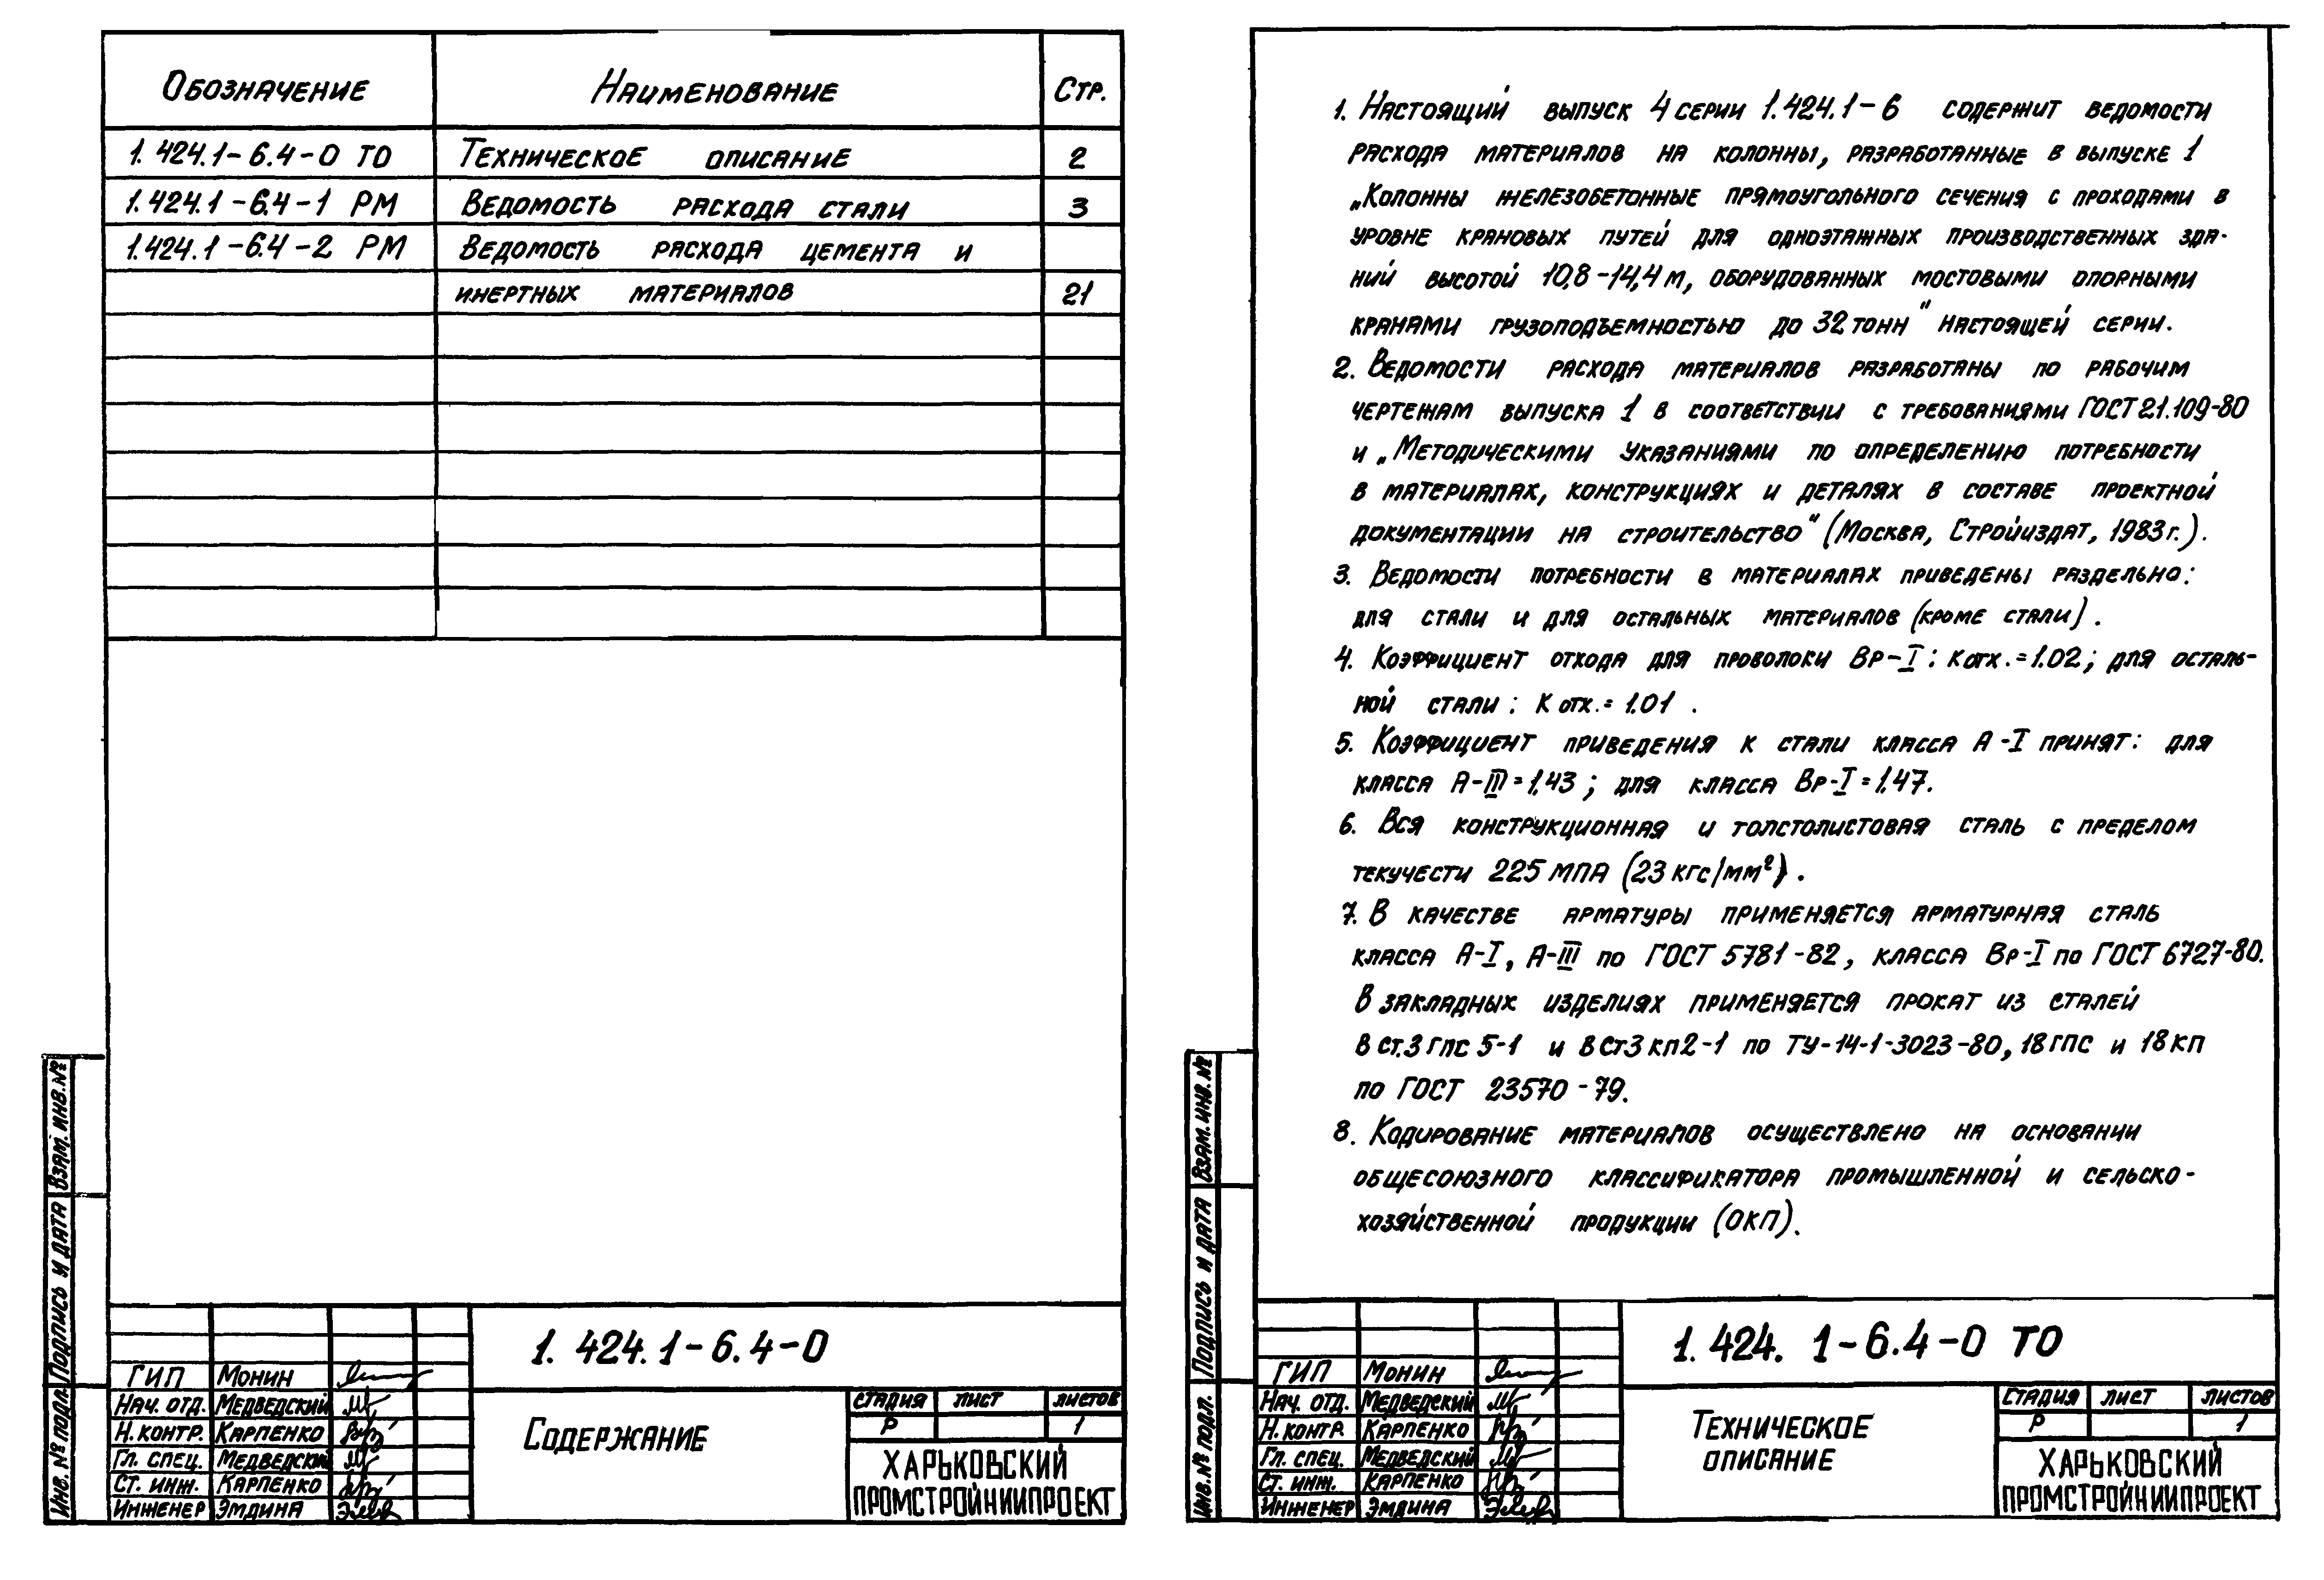 Обозначение Наименование Стр.
1.424.1-6.4-0 ТО Техническое описание 2
1.424.1-6.4-1 РМ Ведомость расхода стали 3
1.424.1-6.4-2 РМ Ведомость расхода цемента и
инертных материалов 21
Взам. инв. №
Подпись и дата
Инв. № подл.
1.424.1-6.4-0
ГИП Монин
Нач. отд. Медведский
Н. контр. Карпенко
Гл. спец. Медведский
Ст. инж. Карпенко
Инженер Эмдина
Содержание
стадия лист листов
Р 1
ХАРЬКОВСКИЙ
ПРОМСТРОЙНИИПРОЕКТ
1. Настоящий выпуск 4 серии 1.424.1-6 содержит ведомости
расхода материалов на колонны, разработанные в выпуске 1
„Колонны железобетонные прямоугольного сечения с проходами в
уровне крановых путей для одноэтажных производственных зда-
ний высотой 10,8-14,4 м, оборудованных мостовыми опорными
кранами грузоподъемностью до 32 тонн" настоящей серии.
2. Ведомости расхода материалов разработаны по рабочим
чертежам выпуска 1 в соответствии с требованиями ГОСТ 21.109-80
и „Методическими указаниями по определению потребности
в материалах, конструкциях и деталях в составе проектной
документации на строительство" (Москва, Стройиздат, 1983г.).
3. Ведомости потребности в материалах приведены раздельно:
для стали и для остальных материалов (кроме стали).
4. Коэффициент отхода для проволоки Вр-I: Котх.=1.02; для осталь-
ной стали: К отх.=1.01.
5. Коэффициент приведения к стали класса А-I принят: для
класса А-III=1.43; для класса Вр-I=1.47.
6. Вся конструкционная и толстолистовая сталь с пределом
текучести 225 МПА (23 кгс/мм²).
7. В качестве арматуры применяется арматурная сталь
класса А-I, А-III по ГОСТ 5781-82, класса Вр-I по ГОСТ 6727-80.
В закладных изделиях применяется прокат из сталей
В ст.3 Гпс 5-1 и В Ст3 кп2-1 по ТУ-14-1-3023-80, 18ГПС и 18КП
по ГОСТ 23570-79.
8. Кодирование материалов осуществлено на основании
общесоюзного классификатора промышленной и сельско-
хозяйственной продукции (ОКП).
Взам. инв. №
Подпись и дата
Инв. № подл.
1.424.1-6.4-0 ТО
ГИП Монин
Нач. отд. Медведский
Н. контр. Карпенко
Гл. спец. Медведский
Ст. инж. Карпенко
Инженер Эмдина
Техническое
описание
стадия лист листов
Р 1
ХАРЬКОВСКИЙ
ПРОМСТРОЙНИИПРОЕКТ